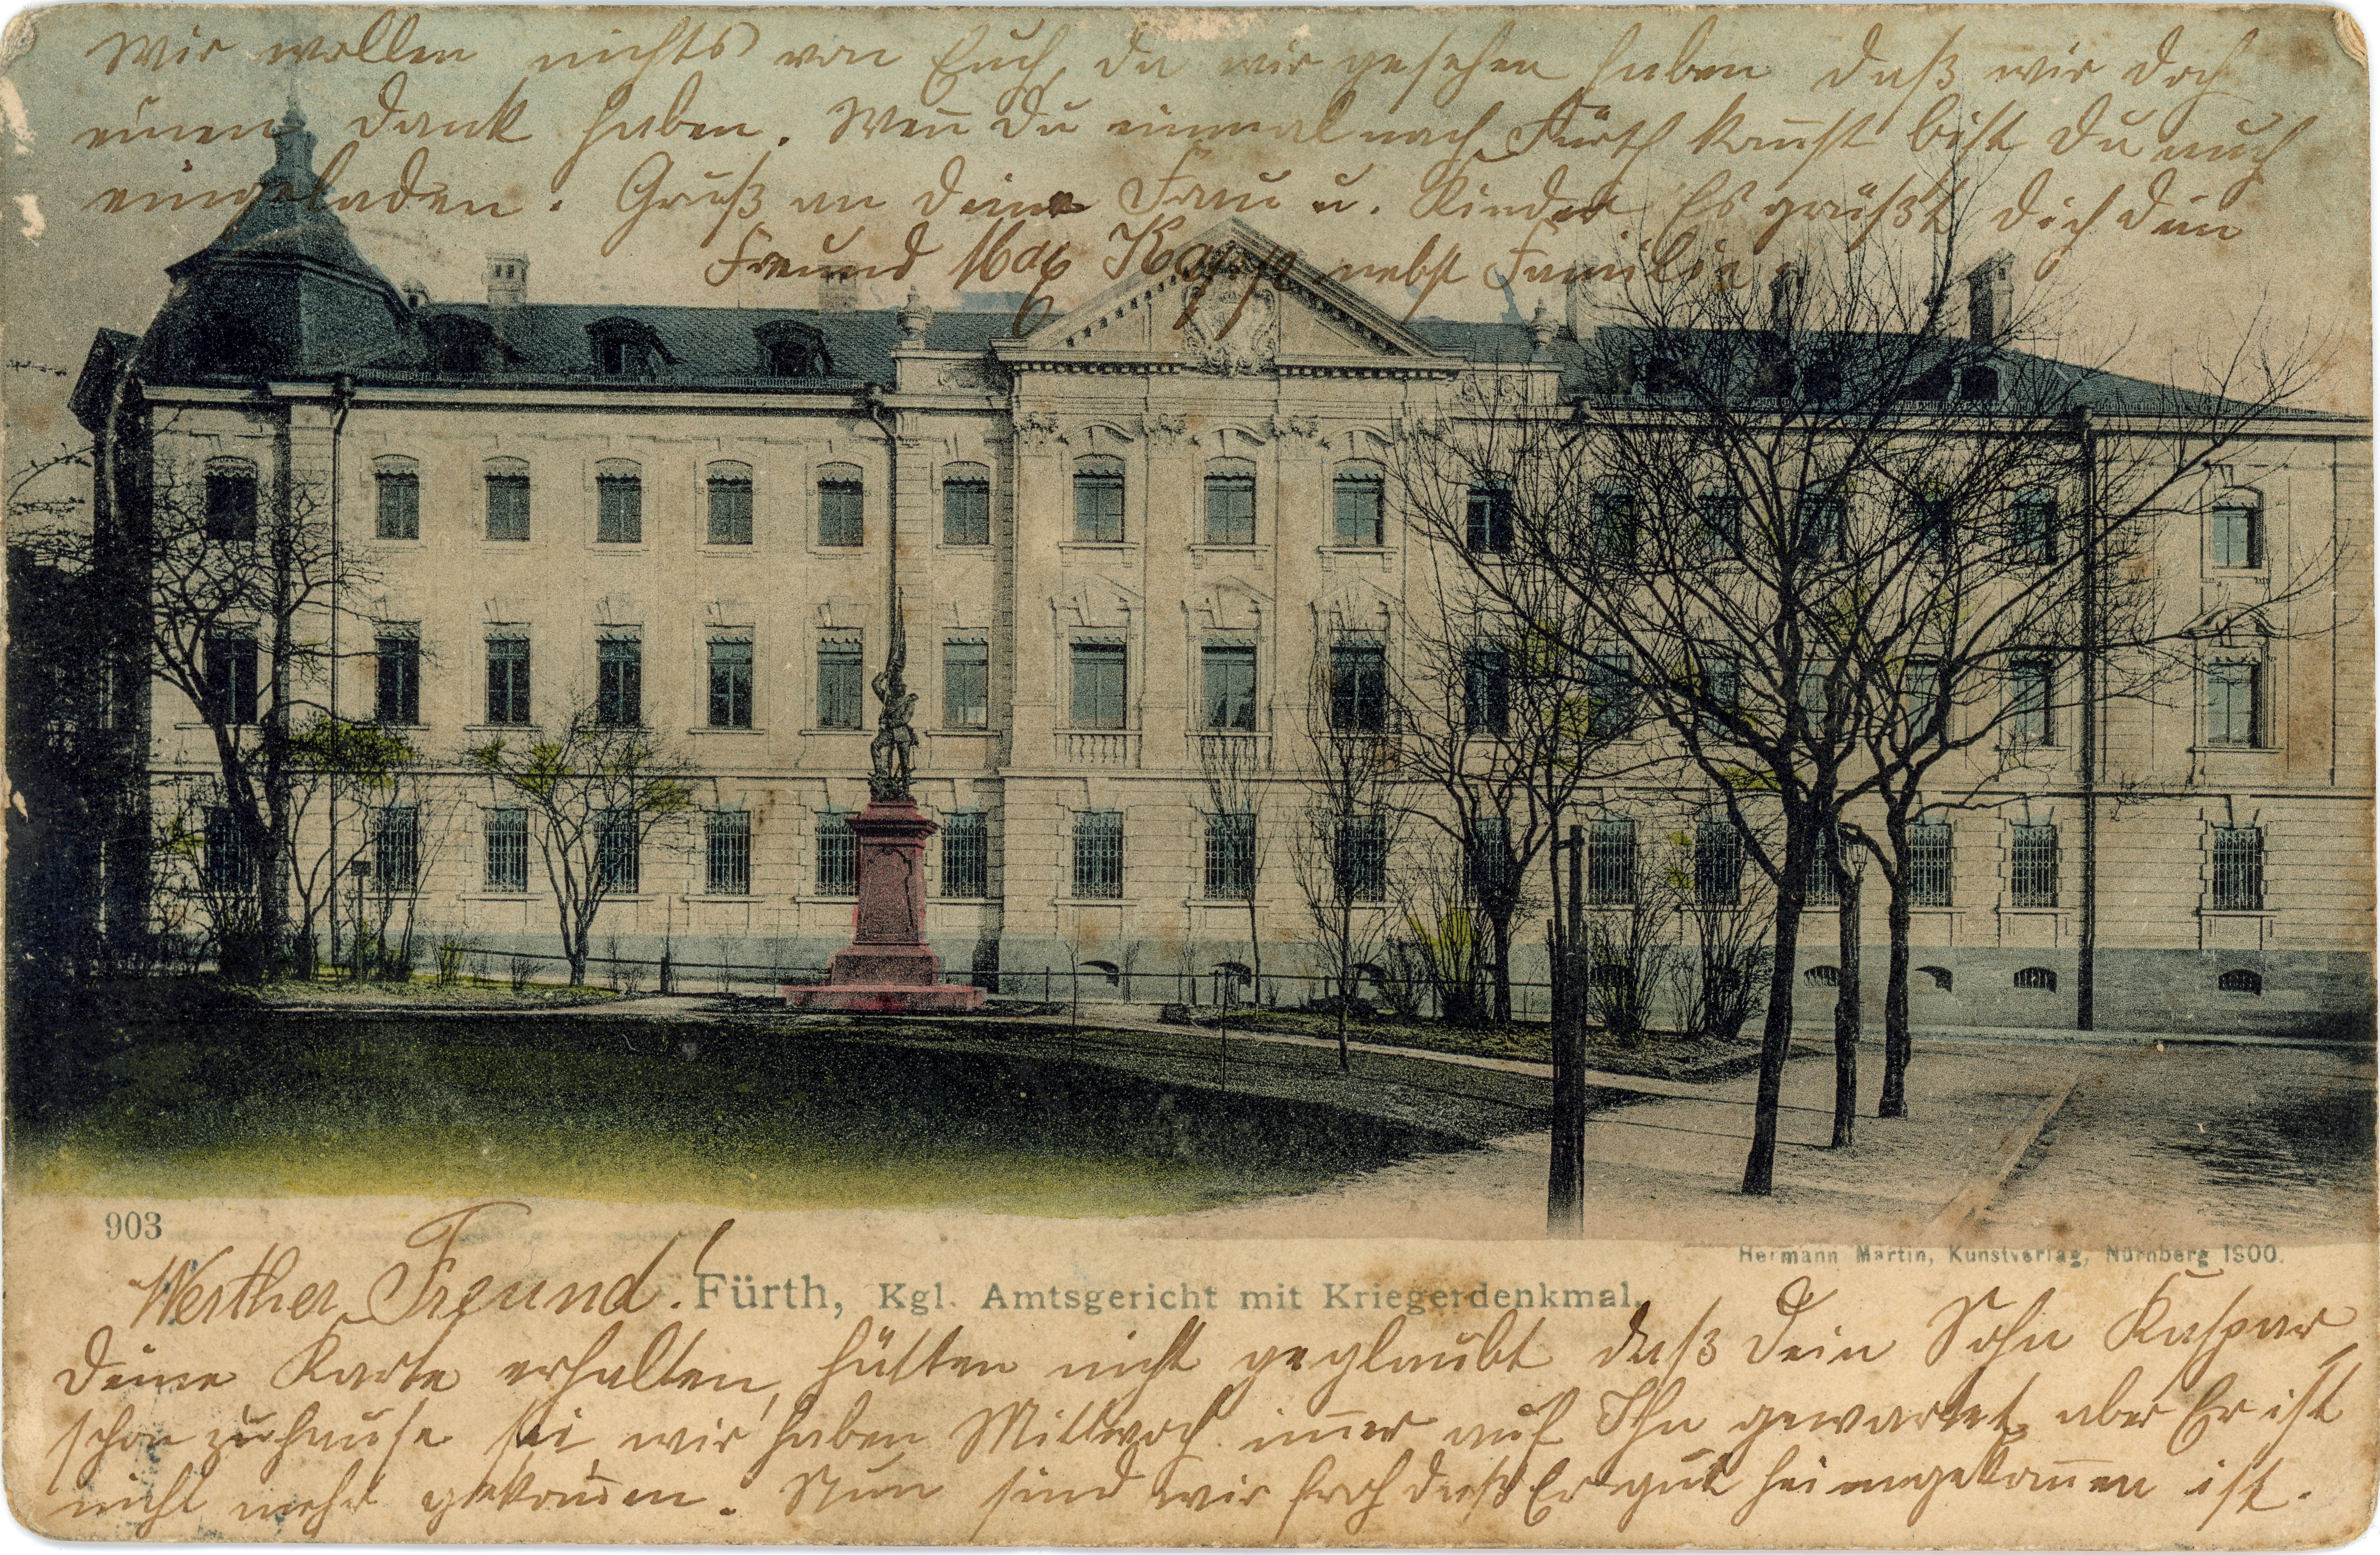 Wir wollen nichts von Euch, da wir gesehen haben daß wir doch
einen Dank haben. Weñ Du einmal nach Fürth kom̄st bist Du auch
eingeladen. Gruß an deine Frau u. Kinder. Es grüßt dich dein
Freund Max Kapp nebst Familie.
903
Hermann Martin, Kunstverlag, Nürnberg 1900.
Werther Freund!
Fürth, Kgl. Amtsgericht mit Kriegerdenkmal.
Deine Karte erhalten, hätten nicht geglaubt daß Dein Sohn Kaspar
schon zuhause sei wir haben Mittwoch im̄er auf Ihn gewartet, aber Er ist
nicht mehr gekom̄en. Nun sind wir froh daß Er gut heimgekom̄en ist.